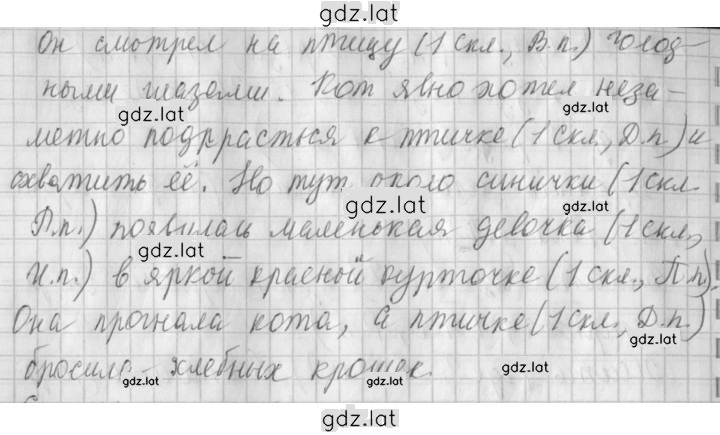 gdz.lat
Он смотрел на птицу (1 скл., В.п.) голод-
ными глазами. Кот явно хотел неза-
gdz.lat gdz.lat
метно подкрасться к птичке (1 скл., Д.п.) и
схватить её. Но тут около синички (1 скл.
gdz.lat gdz.lat
П.п.) появилась маленькая девочка (1 скл.,
gdz.lat
И.п.) в яркой красной курточке (1 скл., П.п).
gdz.lat gdz.lat
Она прогнала кота, а птичке (1 скл., Д.п.)
gdz.lat
бросила хлебных крошек.
gdz.lat gdz.lat gdz.lat
gdz.lat